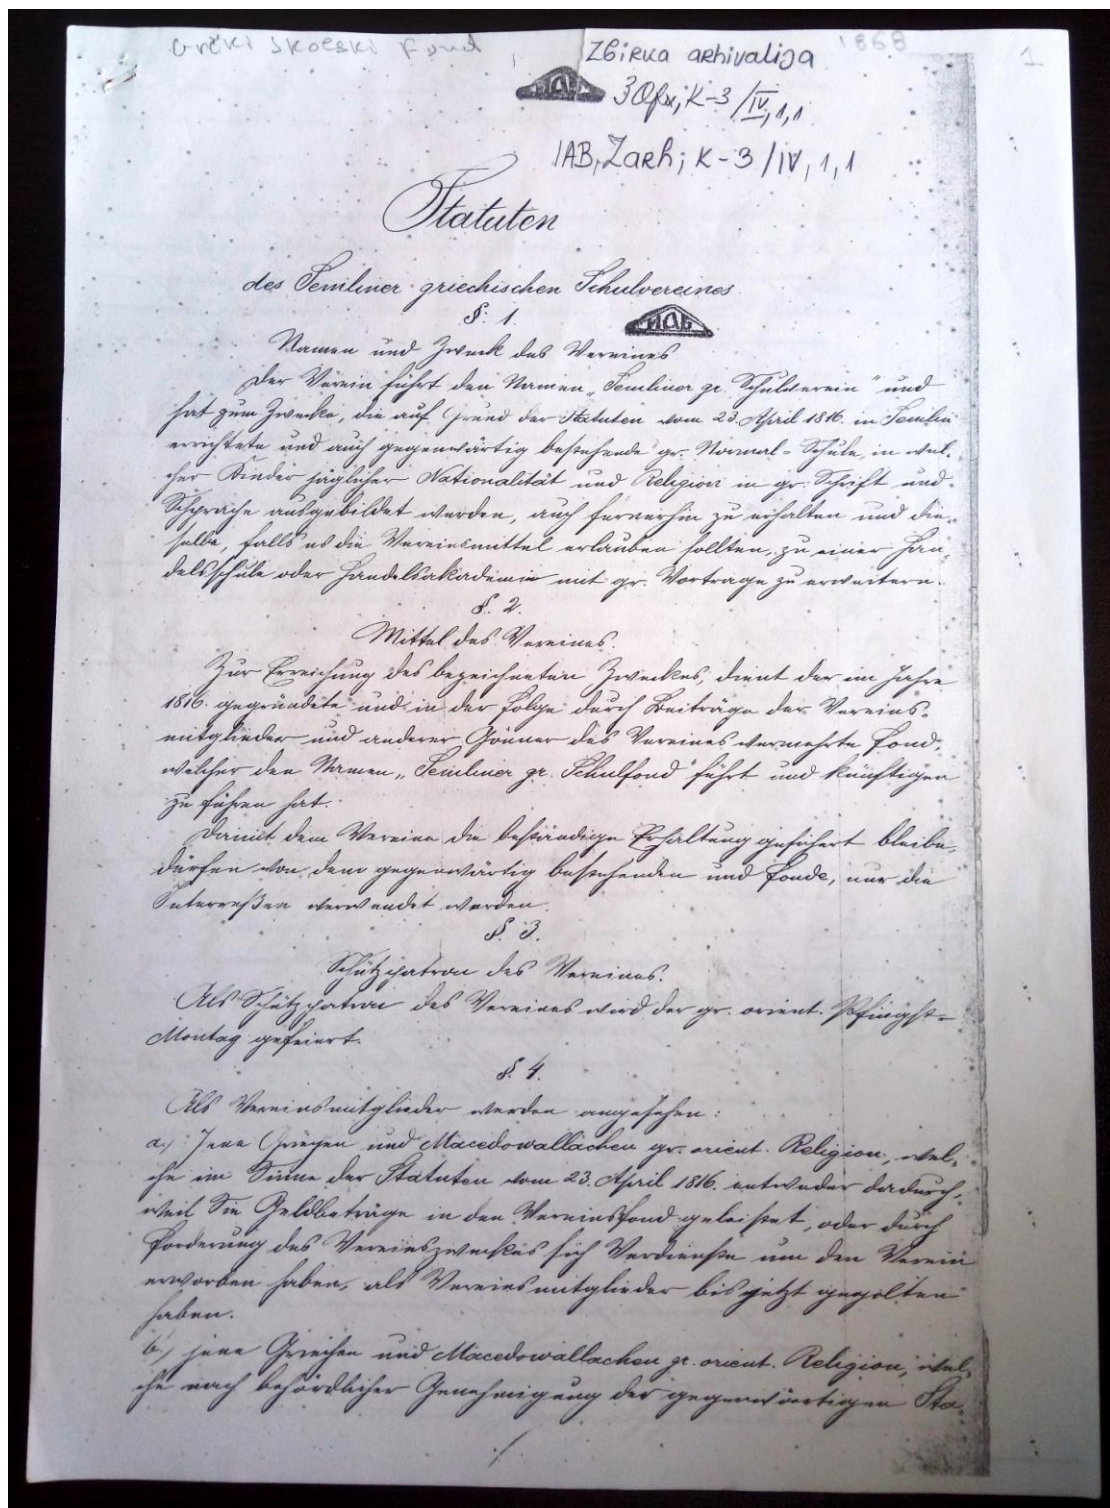 Grčki školski fond
1868
1
Zbirka arhivalija
ЗОфх, K-3/IV, 1, 1
IAB, Zarh; K-3/IV, 1, 1
ИАБ
Statuten
des Semliner griechischen Schulvereines.
§: 1.
ИАБ
Namen und Zweck des Vereines
Der Verein führt den Namen „Semliner gr. Schulverein" und
hat zum Zwecke, die auf Grund der Statuten vom 23. April 1816. in Semlin
errichtete und auch gegenwärtig bestehende gr. Normal-Schule, in wel-
cher Kinder jäglicher Nationalität und Religion in gr. Schrift und
Schprache ausgebildet werden, auch fernerhin zu erhalten und die-
selbe, falls es die Vereinsmittel erlauben sollten, zu einer Han-
delsschule oder Handelsakademie mit gr. Vortrage zu erweitern.
§. 2.
Mittel des Vereines.
Zur Erreichung des bezeichneten Zweckes, dient der im Jahre
1816. gegründete und in der Folge durch Beiträge der Vereins-
mitglieder und anderer Gönner des Vereines vermehrte Fond,
welcher den Namen „Semliner gr. Schulfond" führt und künftigen
zu führen hat.
Damit dem Vereine die beständige Erhaltung gesichert bleibe,
dürfen von dem gegenwärtig bestehenden und Fonde, nur die
Interreßen verwendet werden.
§. 3.
Schützpatron des Vereines.
Als Schützpatron des Vereines wird der gr. orient. Pfingst-
Montag gefeiert.
§. 4.
Als Vereinsmitglieder werden angesehen:
a.) Jene Griechen und Macedowallachen gr. orient. Religion, wel-
che im Sinne der Statuten vom 23. April 1816. entweder dadurch,
weil Sie Geldbeträge in den Vereinsfond geleistet, oder durch
Forderung des Vereinszweckes sich Verdienste um den Verein
erworben haben, als Vereinsmitglieder bis jetzt gegolten
haben.
b.) jene Griechen und Macedowallachen gr. orient. Religion, wel-
che nach behördlicher Genehmigung der gegenwärtigen Sta-